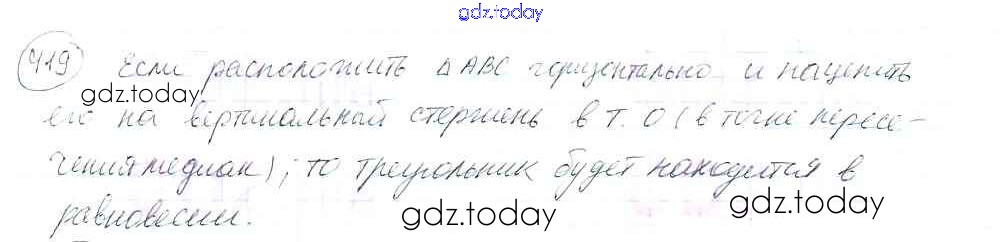 gdz.today
419 Если расположить △ABC горизонтально и нацепить
gdz.today
его на вертикальный стержень в т. O (в точке пересе-
чения медиан), то треугольник будет находится в
равновесии.
gdz.today
gdz.today